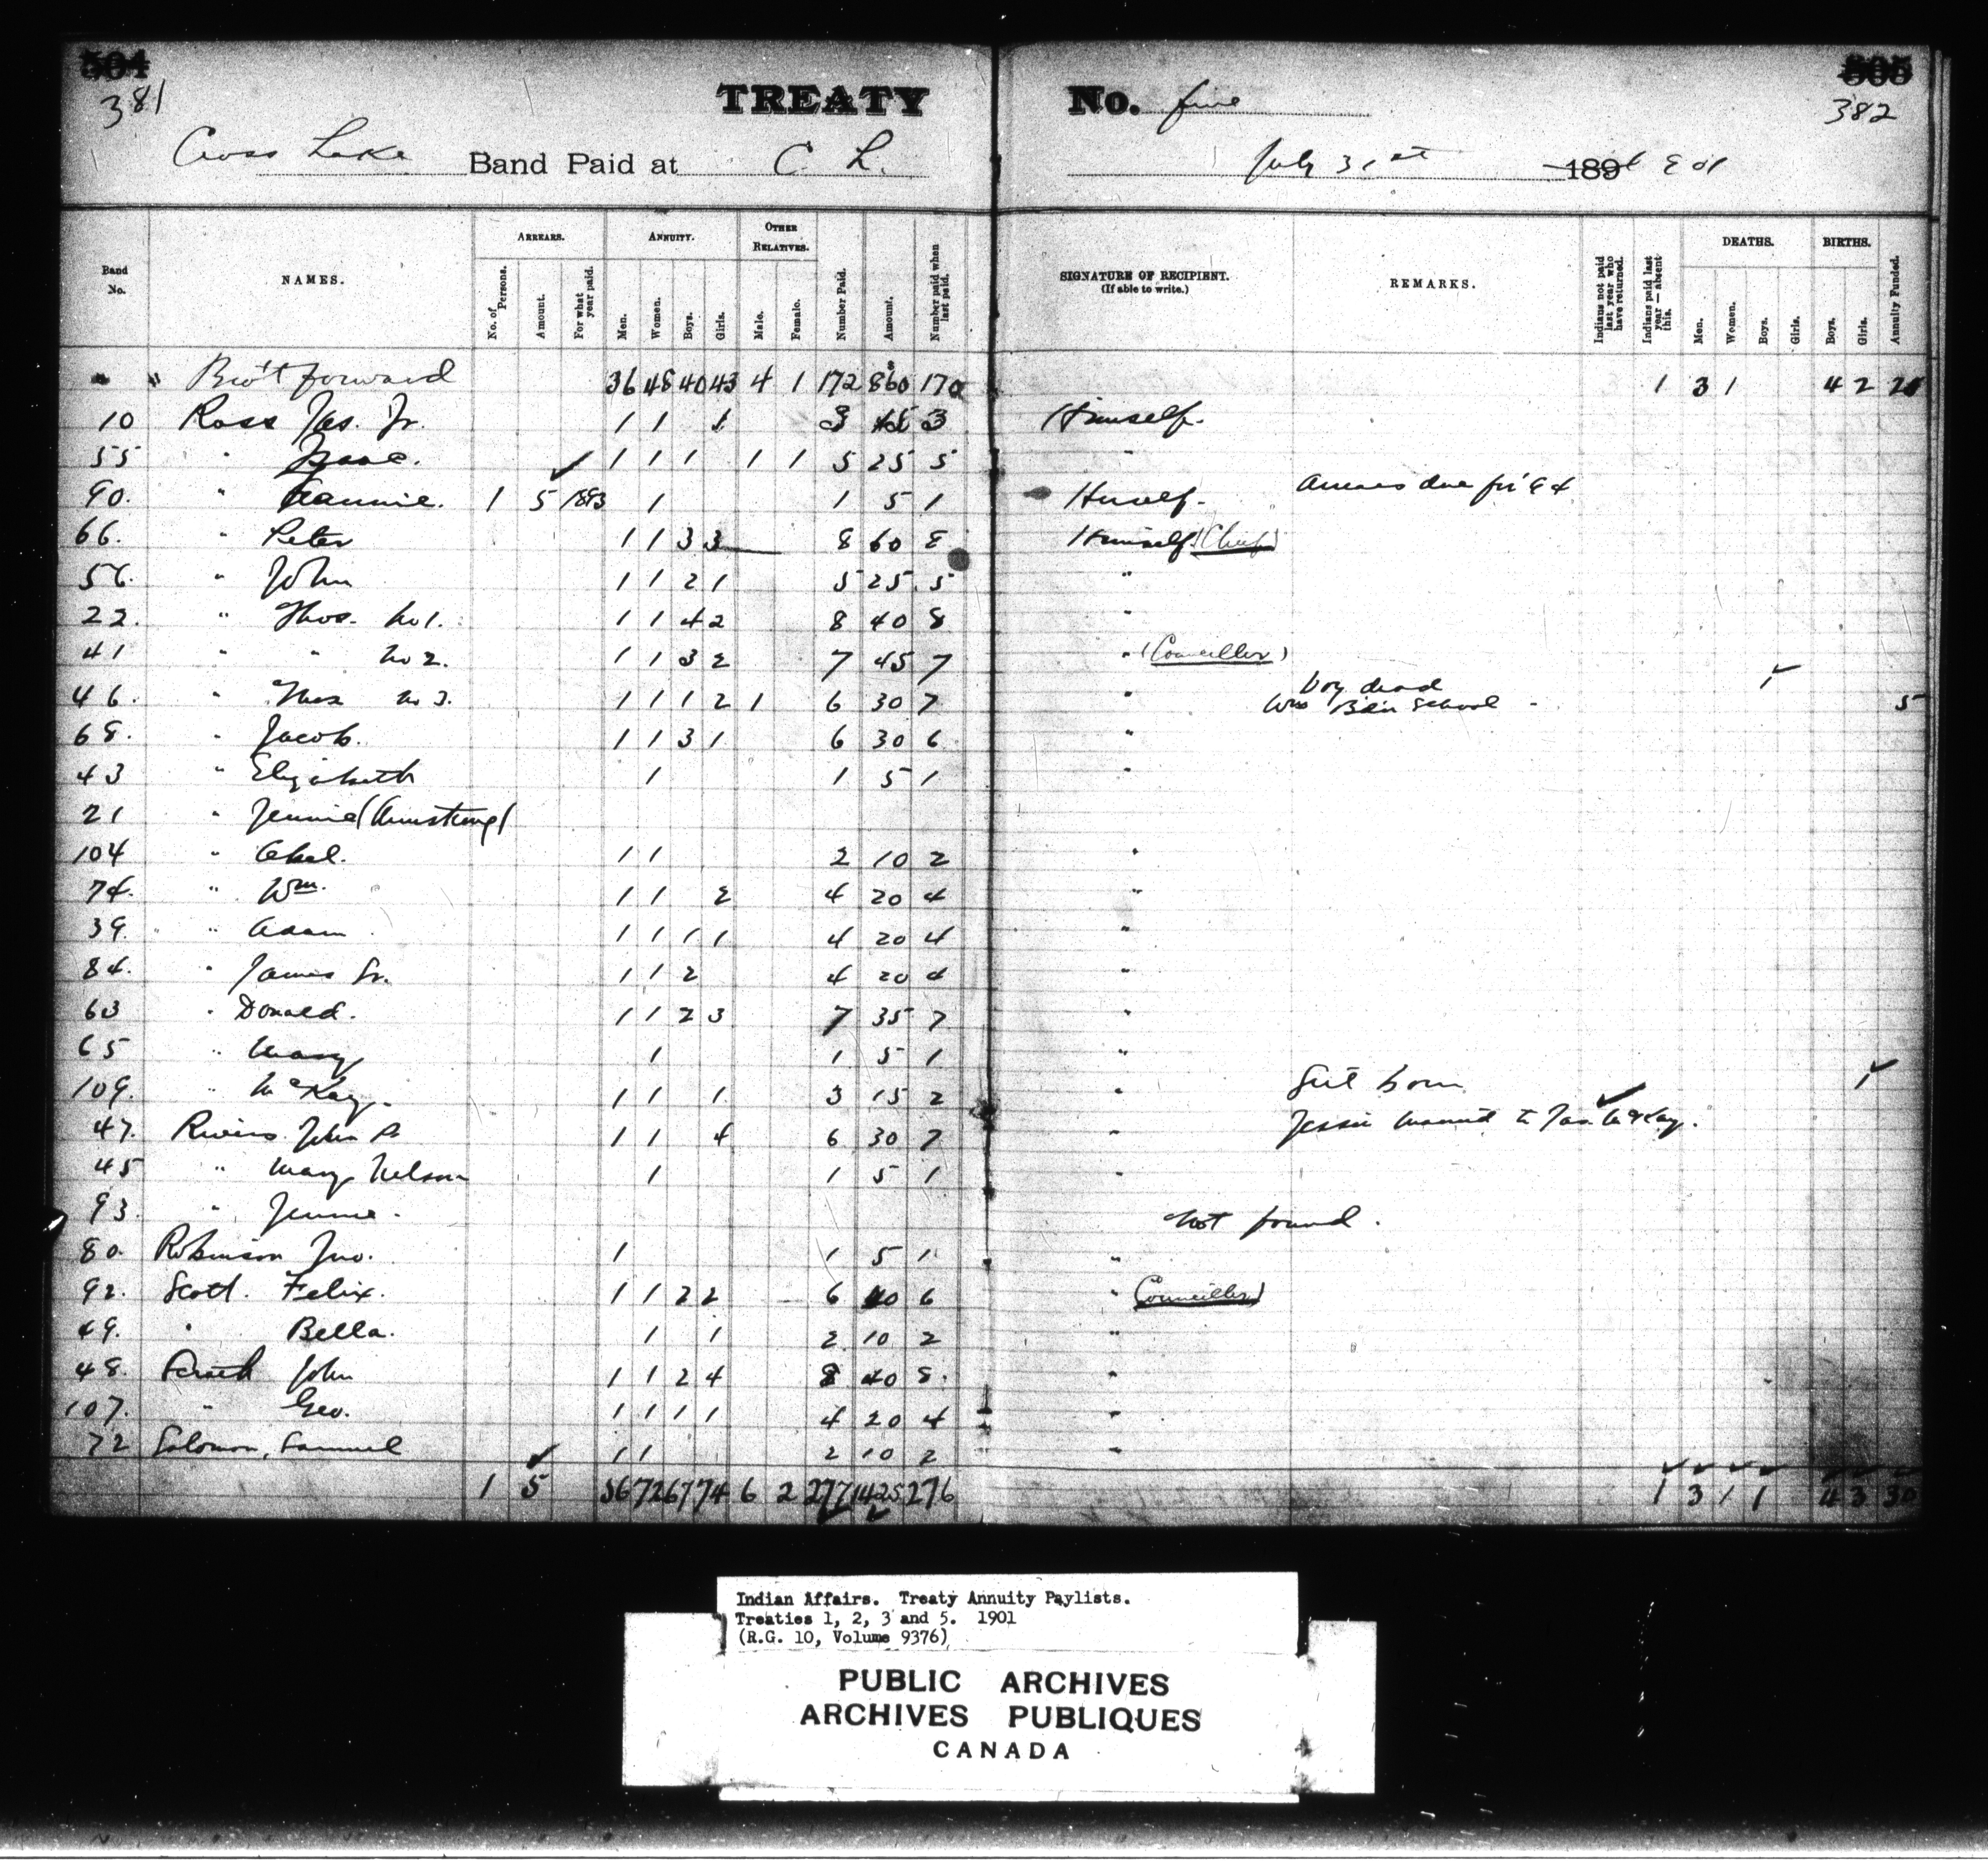 504 505
381 382
TREATY No. five
Cross Lake Band Paid at C. L. July 31st 1901
Band No. NAMES. ARREARS. No. of Persons. Amount. For what year paid. ANNUITY. Men. Women. Boys. Girls. OTHER RELATIVES. Male. Female. Number Paid. Amount. Number paid when last paid. SIGNATURE OF RECIPIENT. (If able to write.) REMARKS. Indians not paid last year who have returned. Indians paid last year — absent this. DEATHS. Men. Women. Boys. Girls. BIRTHS. Boys. Girls. Annuity Funded.
" " Bro't forward 36 48 40 43 4 1 172 860 170 1 3 1 4 2 25
10 Ross Jas. Jr. 1 1 1 3 15 3 Himself.
55 " Isaac. 1 1 1 1 1 5 25 5 "
90. " 1 5 1893 1 1 5 1 Herself. Arrears due for 94
66. " Peter 1 1 3 3 8 60 8 Himself (Chief)
56. " John 1 1 2 1 5 25 5 "
22. " Thos. No 1. 1 1 4 2 8 40 8 "
41 " " No 2. 1 1 3 2 7 45 7 " (Councillor)
46. " Thos No 3. 1 1 1 2 1 6 30 7 " boy dead 1 5
School
68. " Jacob. 1 1 3 1 6 30 6 "
43 " Elizabeth 1 1 5 1 "
21 " Jennie (Armstrong)
104 " Abel. 1 1 2 10 2 "
74. " Wm. 1 1 2 4 20 4 "
39. " Adam 1 1 1 1 4 20 4 "
84. " James Sr. 1 1 2 4 20 4 "
63 " Donald. 1 1 2 3 7 35 7 "
65 " Mary 1 1 5 1 "
109. " McKay. 1 1 1 3 15 2 " Girl born 1
47. Rivers John 1 1 4 6 30 7 " Jessie married to Jas. McKay.
45 " Mary Nelson 1 1 5 1 "
93. " Jennie. Not found.
80. Robinson Jno. 1 1 5 1 "
92. Scott. Felix. 1 1 2 2 6 40 6 " (Councillor)
49. " Bella. 1 1 2 10 2 "
48. John 1 1 2 4 8 40 8. "
107. " Geo. 1 1 1 1 4 20 4 "
72 Solomon, Samuel 1 1 2 10 2 "
1 5 56 72 67 74 6 2 277 1425 276 1 3 1 1 4 3 30
Indian Affairs. Treaty Annuity Paylists.
Treaties 1, 2, 3 and 5. 1901
(R.G. 10, Volume 9376)
PUBLIC ARCHIVES
ARCHIVES PUBLIQUES
CANADA